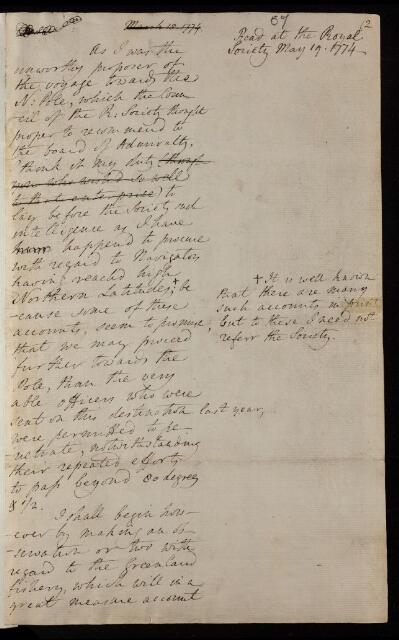 March 10. 1774.
67
2
Read at the Royal
Society May 19. 1774
As I was the
unworthy proposer of
the voyage towards the
N: Pole, which the Coun
-cil of the R. Society thought
proper to recommend to
the board of Admiralty,
I think it my duty
who wished so well
to that enterprise) to
lay before the Society such
intelligence as I have
happened to procure
with regard to Navigators
having reached high
Northern Latitudes;+ be
-cause some of these
accounts, seem to promise,
that we may proceed
further towards the
Pole, than the very
able officers who were
sent on this destination last year,
were permitted to pe-
-netrate, notwithstanding
their repeated efforts
to pass beyond 80 degrees
& 1/2.
+ It is well known
that there are many
such accounts in print
but to these I need not
referr the Society.
I shall begin how-
-ever by making an ob-
-servation or two with
regard to the Greenland
fishery, which will in a
great measure account